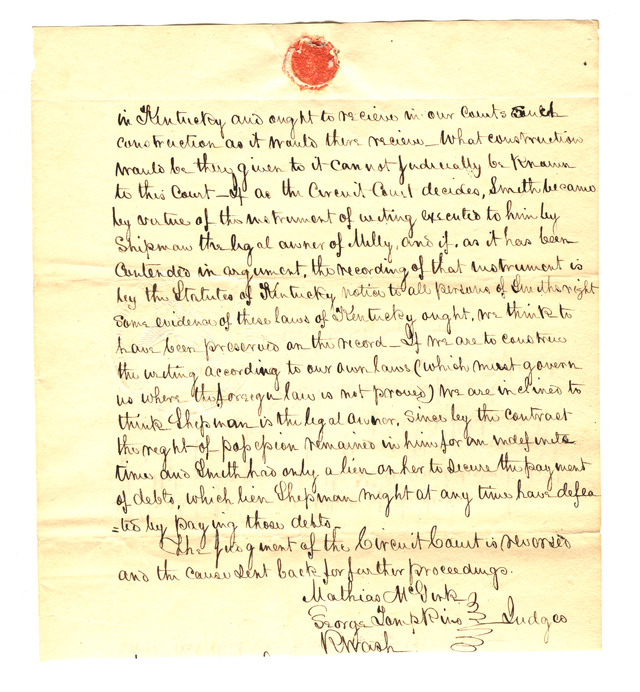 in Kentucky and ought to recieve in our courts such
construction as it would there recieve – What construction
would be then given to it cannot Judicially be Known
to this Court – If as the Circuit Court decides, Smith became
by virtue of the instrument of writing executed to him by
Shipman the legal owner of Milly, and if, as it has been
Contended in argument, the recording of that instrument is
by the Statutes of Kentucky notice to all persons of Smiths right
Some evidence of these laws of Kentucky ought, we think to
have been preserved on the record – If we are to construe
the writing according to our own laws (which must govern
us where the foreign law is not proved) we are inclined to
think Shipman is the legal owner, since by the contract
the right of possession remained in him for an indefinite
time and Smith had only a lien on her to secure the payment
of debts, which lien Shipman might at any time have defea
=ted by paying those debts –
The Judgment of the Circuit Court is reversed
and the cause sent back for further proceedings.
Mathias McGirk
George Tompkins Judges
R Wash